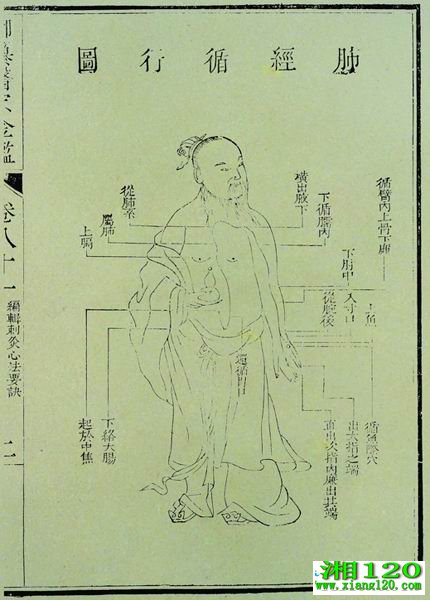 肺經循行圖
循臂內上骨下廉
橫出腋下
下循臑內
從肺系
屬肺
上膈
下肘中
入寸口
上魚
從腕後
還循胃口
循魚際穴
出大指之端
直出次指內廉出其端
下絡大腸
起於中焦
卷八十一
編輯刺灸心法要訣
湘120
www.xiang120.com